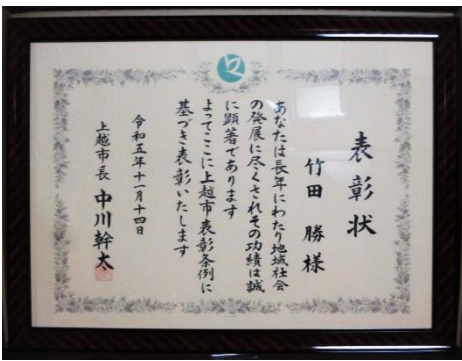 表彰状
竹田 勝様
あなたは長年にわたり地域社会
の発展に尽くされその功績は誠
に顕著であります
よってここに上越市表彰条例に
基づき表彰いたします
令和五年十一月十四日
上越市長 中川幹太